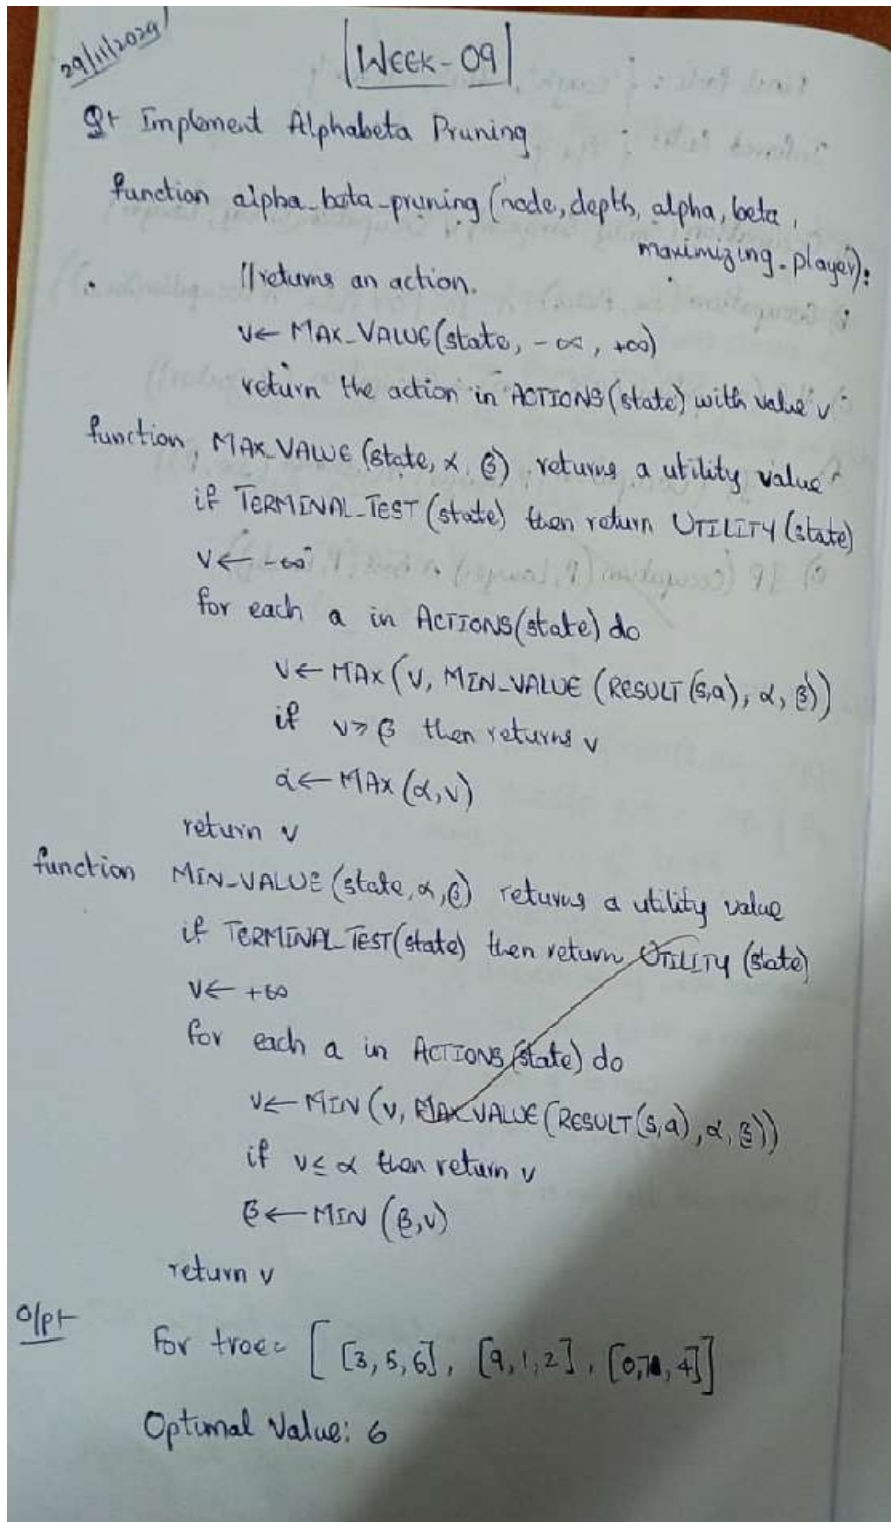 29/11/2024
WEEK-09
Q1 Implement Alphabeta Pruning
function alpha_beta_pruning (node, depth, alpha, beta,
maximizing_player):
//returns an action.
v← MAX_VALUE(state, -∞, +∞)
return the action in ACTIONS(state) with value v
function, MAX_VALUE (state, α, β) returns a utility value
if TERMINAL_TEST (state) then return UTILITY (state)
v← -∞
for each a in ACTIONS(state) do
v← MAX (v, MIN_VALUE (RESULT (s,a), α, β))
if v≥ β then returns v
α← MAX (α,v)
return v
function MIN_VALUE (state, α, β) returns a utility value
if TERMINAL_TEST(state) then return UTILITY (state)
v← +∞
for each a in ACTIONS (state) do
v← MIN (v, MAX_VALUE (RESULT (s,a), α, β))
if v≤ α then return v
β← MIN (β,v)
return v
O/pt
For tree= [ [3,5,6], [9,1,2], [0, , 4]]
Optimal Value: 6